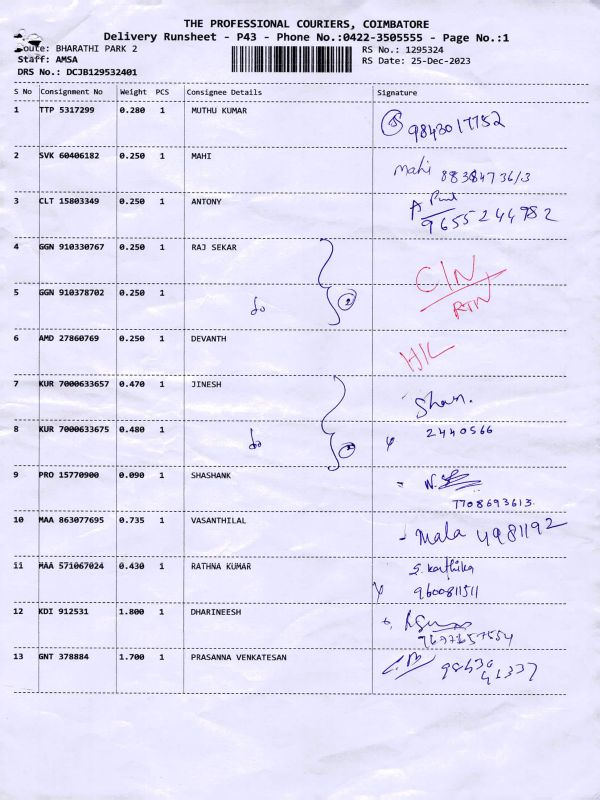 THE PROFESSIONAL COURIERS, COIMBATORE
Delivery Runsheet - P43 - Phone No.:0422-3505555 - Page No.:1
Route: BHARATHI PARK 2
RS No.: 1295324
Staff: AMSA
RS Date: 25-Dec-2023
DRS No.: DCJB129532401
S No Consignment No Weight PCS Consignee Details Signature
1 TTP 5317299 0.280 1 MUTHU KUMAR 9843017752
2 SVK 60406182 0.250 1 MAHI Mahi 8838473613
3 CLT 15803349 0.250 1 ANTONY 9655244782
4 GGN 910330767 0.250 1 RAJ SEKAR C/N
5 GGN 910378702 0.250 1 do 2 RTN
6 AMD 27860769 0.250 1 DEVANTH H/L
7 KUR 7000633657 0.470 1 JINESH
8 KUR 7000633675 0.480 1 do 2 2440566
9 PRO 15770900 0.090 1 SHASHANK 7708693613.
10 MAA 863077695 0.735 1 VASANTHILAL Mala 4981192
11 MAA 571067024 0.430 1 RATHNA KUMAR S. Karthika
9600811511
12 KDI 912531 1.800 1 DHARINEESH
13 GNT 378884 1.700 1 PRASANNA VENKATESAN